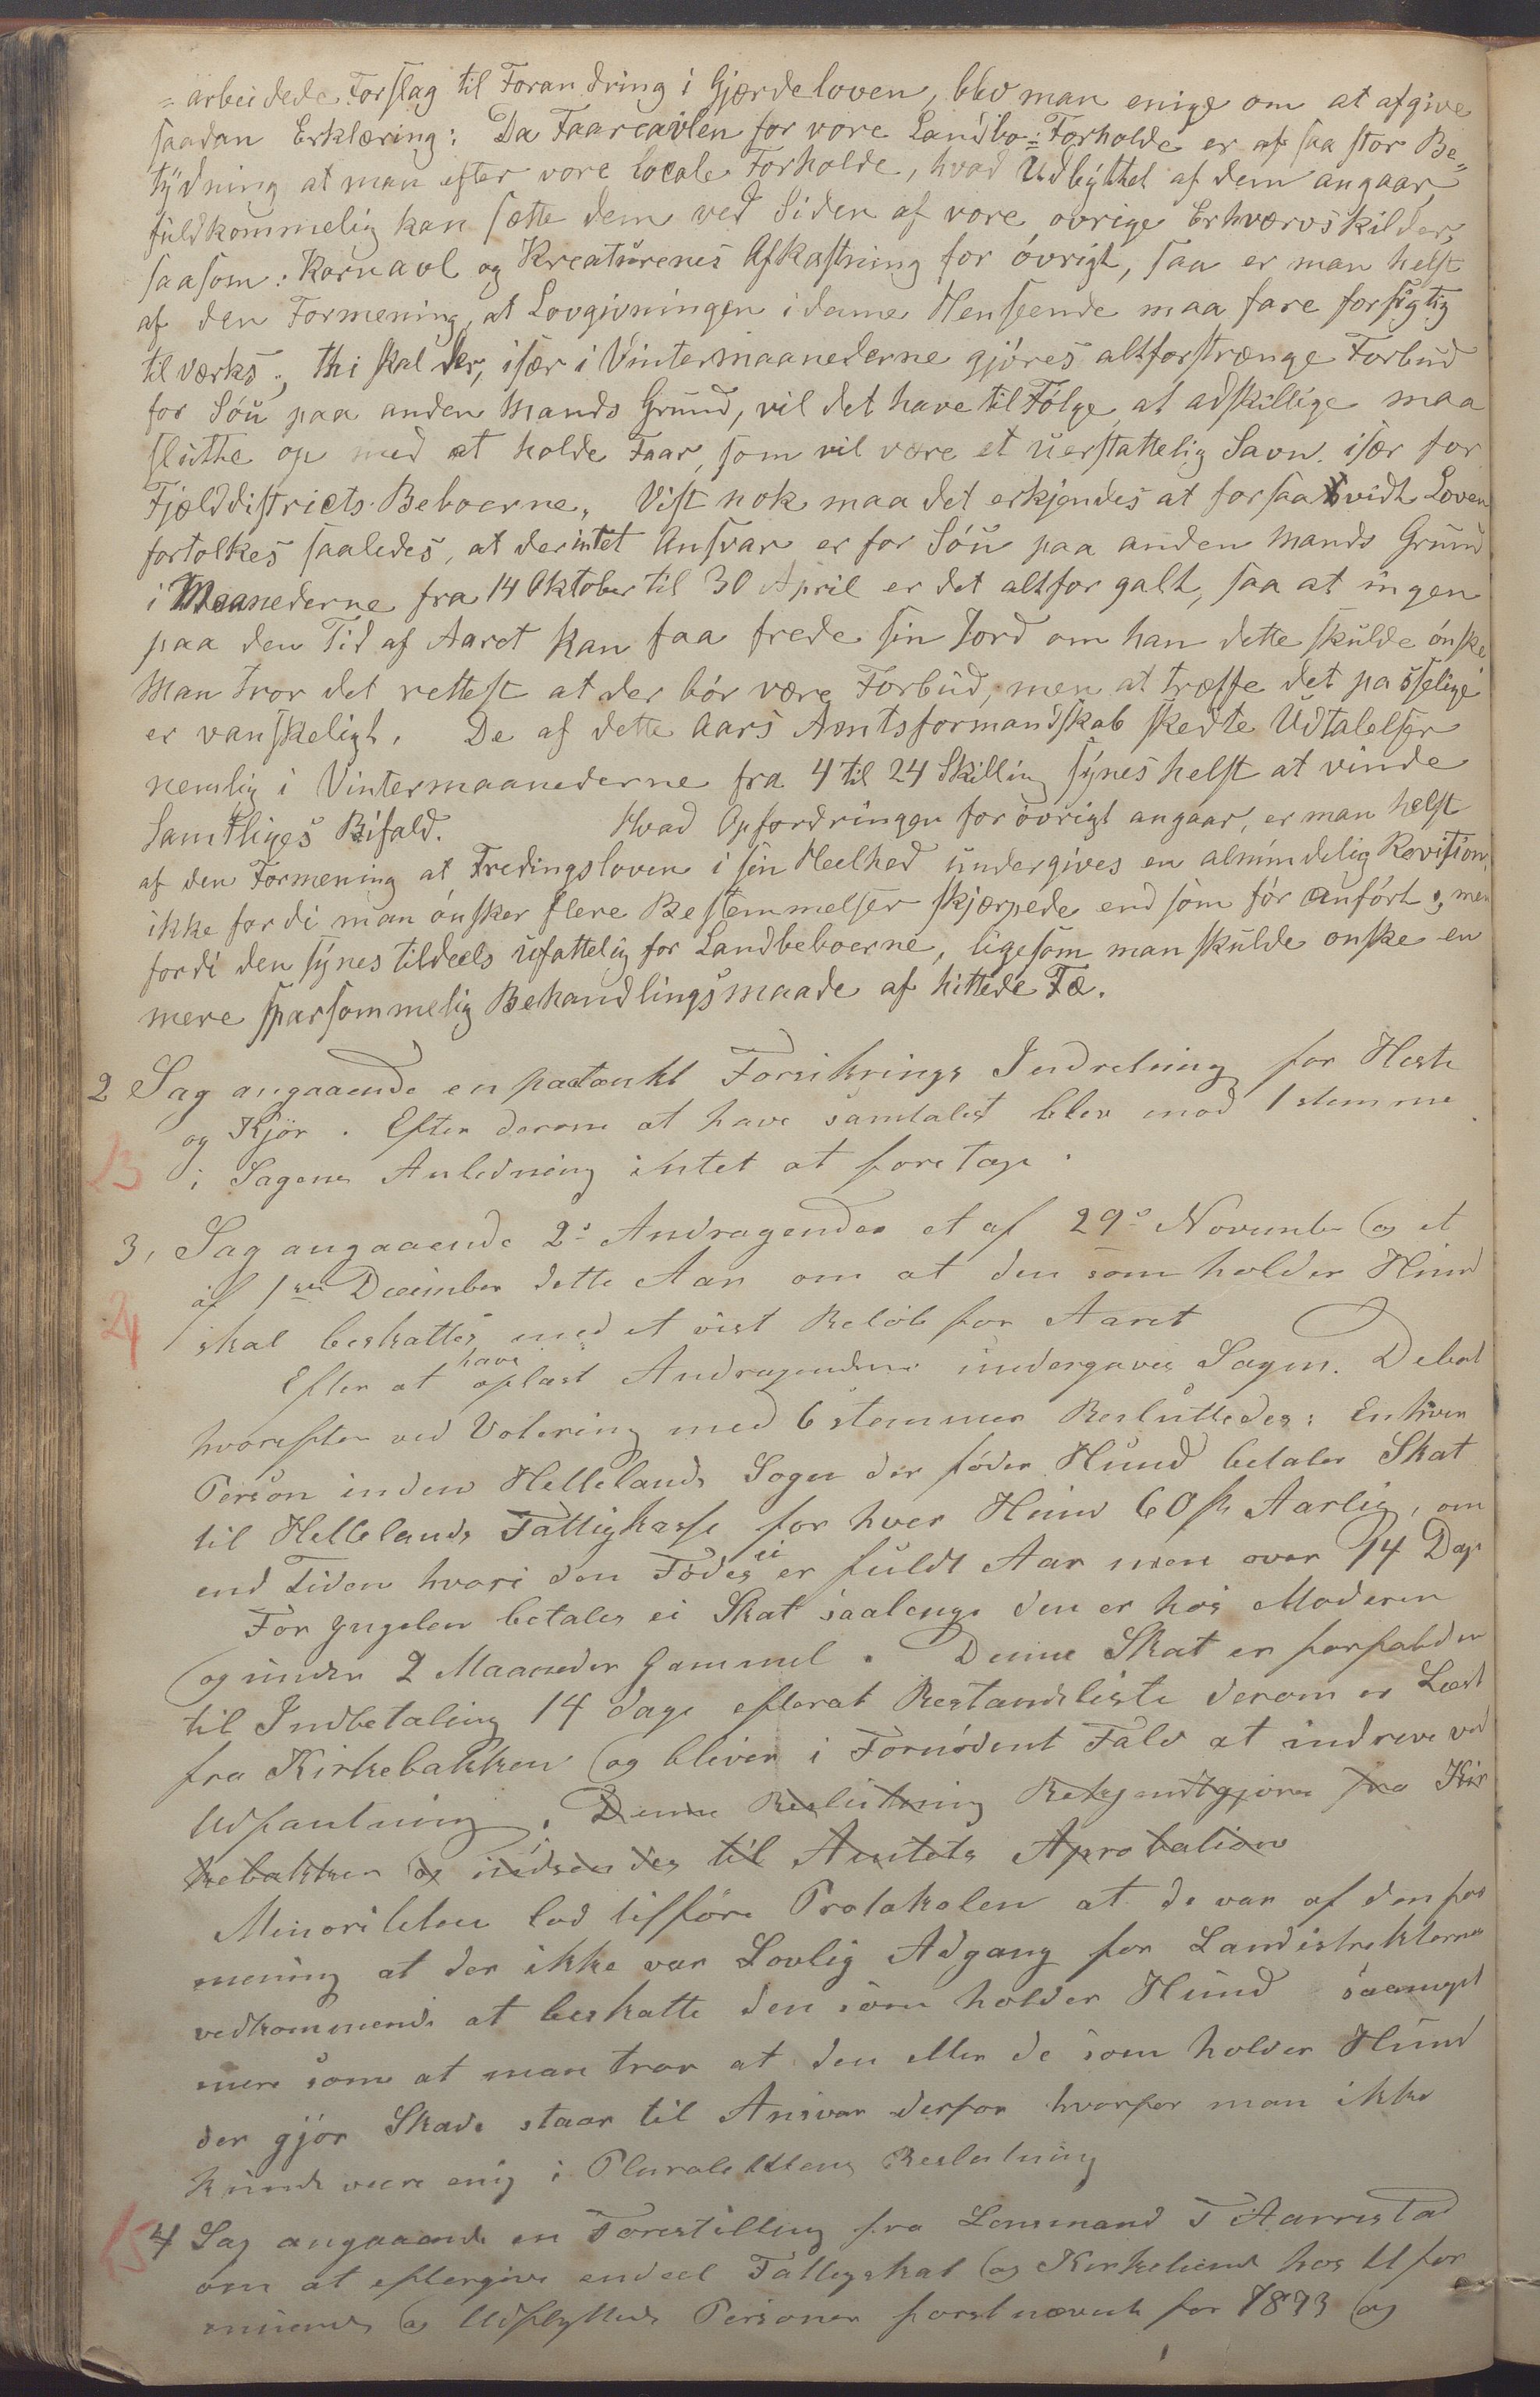 =arbeidede Forslag til Forandring i Gjærdeloven, blev man enige om at afgive
saadan Erklæring: Da Faareavlen for vore Landbo=Forholde er af saa stor Be=
tydning at man efter vore locale Forholde, hvad Udbyttet af dem angaar,
fuldkommelig kan sætte dem ved Siden af vore øvrige Erhværvskilder,
saasom: Kornavl og Kreaturenes Afkastning for øvrigt, saa er man helst
af den Formening, at Lovgivningen i denne Henseende maa fare forsigtig
tilværks; thi skal der, især i Vintermaanederne gjøres altforstrænge Forbud
for Søu paa anden Mands Grund, vil det have til Følge at adskillige maa
slutte op med at holde Faar, som vil være et uerstattelig Savn, især for
Fjælddistricts Beboerne. Vist nok maa det erkjendes at forsaavidt Loven
fortolkes saaledes, at der intet Ansvar er for Søu paa anden Mands Grund
i Maanederne fra 14 Oktober til 30 April er det altfor galt, saa at ingen
paa den Tid af Aaret kan faa frede sin Jord om han dette skulde ønske
Man tror det rettest at der bør være Forbud, men at træffe det passelige
er vanskeligt. De af dette Aars Amtsformandskab skedte Udtalelser
nemlig i Vintermaanederne fra 4 til 24 Skilling synes helst at vinde
Samtliges Bifald. Hvad Opfordringen for øvrigt angaar, er man helst
af den Formening at Fredingsloven i sin Heelhed undergives en almindelig Revision,
ikke fordi man ønsker flere Bestemmelser skjærpede end som før anført, men
fordi den synes tildeels ufattelig for Landbeboerne, ligesom man skulde ønske en
mere sparsommelig Behandlingsmaade af hittede Fæ.
2 Sag angaaende en paatænkt Forsikrings Indretning for Heste
og Kjør. Efter derom at have samtalest blev mod 1 stemme
13 i Sagens Anledning intet at foretage.
3, Sag angaaende 2de Andragender et af 29de November og et
af 1ste December dette Aar om at den som holder Hund
24 skal beskattes med et vist Beløb for Aaret
Efter at have oplæst Andragenderne undergaves Sagen Debat
hvorefter ved Votering med 6 stemmer Besluttedes: Enhver
Person inden Hellelands Sogn der føder Hund betaler Skat
til Hellelands Fattigkasse for hver Hund 60 sk Aarlig, om
end Tiden hvori den Fødes ei er fuldt Aar men over 14 Dage
For yngelen betales ei Skat saalenge den er hos Moderen
og under 2 Maaneder Gammel. Denne Skat er forfalden
til Indbetaling 14 dage efterat Restandsliste derom er Læst
fra Kirkebakken og bliver i Fornødent Fald at inddrive ved
Udpantning. Denne Beslutning Bekjendtgjøres fra Kir
kebakken og indsendes til Amtets Aprobation
Minoriteten lod tilføre Protokolen at de var af den for
mening at der ikke var Lovlig Adgang for Landistrikternes
vedkommende at beskatte den som holder Hund saameget
mere som at man tror at den eller de som holder Hund
der gjør Skade staar til Ansvar derfor hvorfor man ikke
kunde være enig i Pluralitetens Beslutning
15 4 Sag angaaende en Forestilling fra Lensmand T Aarrestad
om at eftergive endeel Fattigskat og Kirketiende hos Ufor
muende og Udflyttede Personer forstnævnte for 1873 og